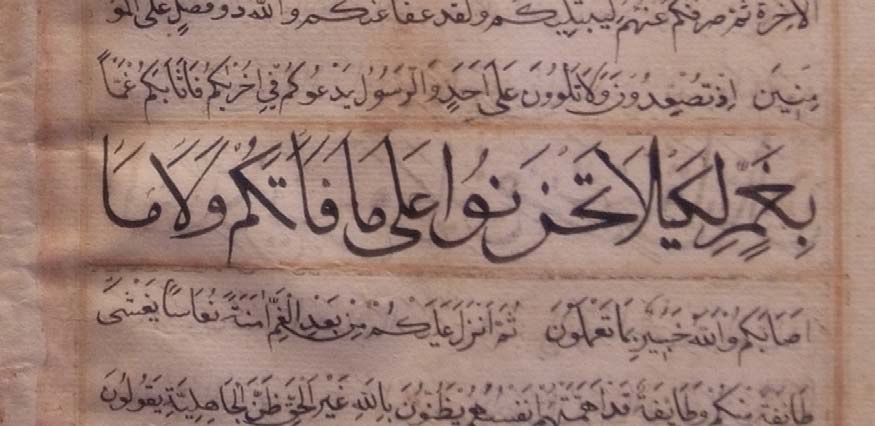 الآخرة ثم صرفكم عنهم ليبتليكم ولقد عفا عنكم والله ذو فضل على المؤ
مِنِينَ اِذْ تُصْعِدُونَ وَلَا تَلْوُونَ عَلٰى اَحَدٍ وَالرَّسُولُ يَدْعُوكُمْ فِي اُخْرٰىكُمْ فَاَثَابَكُمْ غَمًّا
بِغَمٍّ لِكَيْلَا تَحْزَنُوا عَلٰى مَا فَاتَكُمْ وَلَا مَا
اَصَابَكُمْ وَاللّٰهُ خَبِيرٌ بِمَا تَعْمَلُونَ ثُمَّ اَنْزَلَ عَلَيْكُمْ مِنْ بَعْدِ الْغَمِّ اَمَنَةً نُعَاسًا يَغْشٰى
طَائِفَةً مِنْكُمْ وَطَائِفَةٌ قَدْ اَهَمَّتْهُمْ اَنْفُسُهُمْ يَظُنُّونَ بِاللّٰهِ غَيْرَ الْحَقِّ ظَنَّ الْجَاهِلِيَّةِ يَقُولُونَ